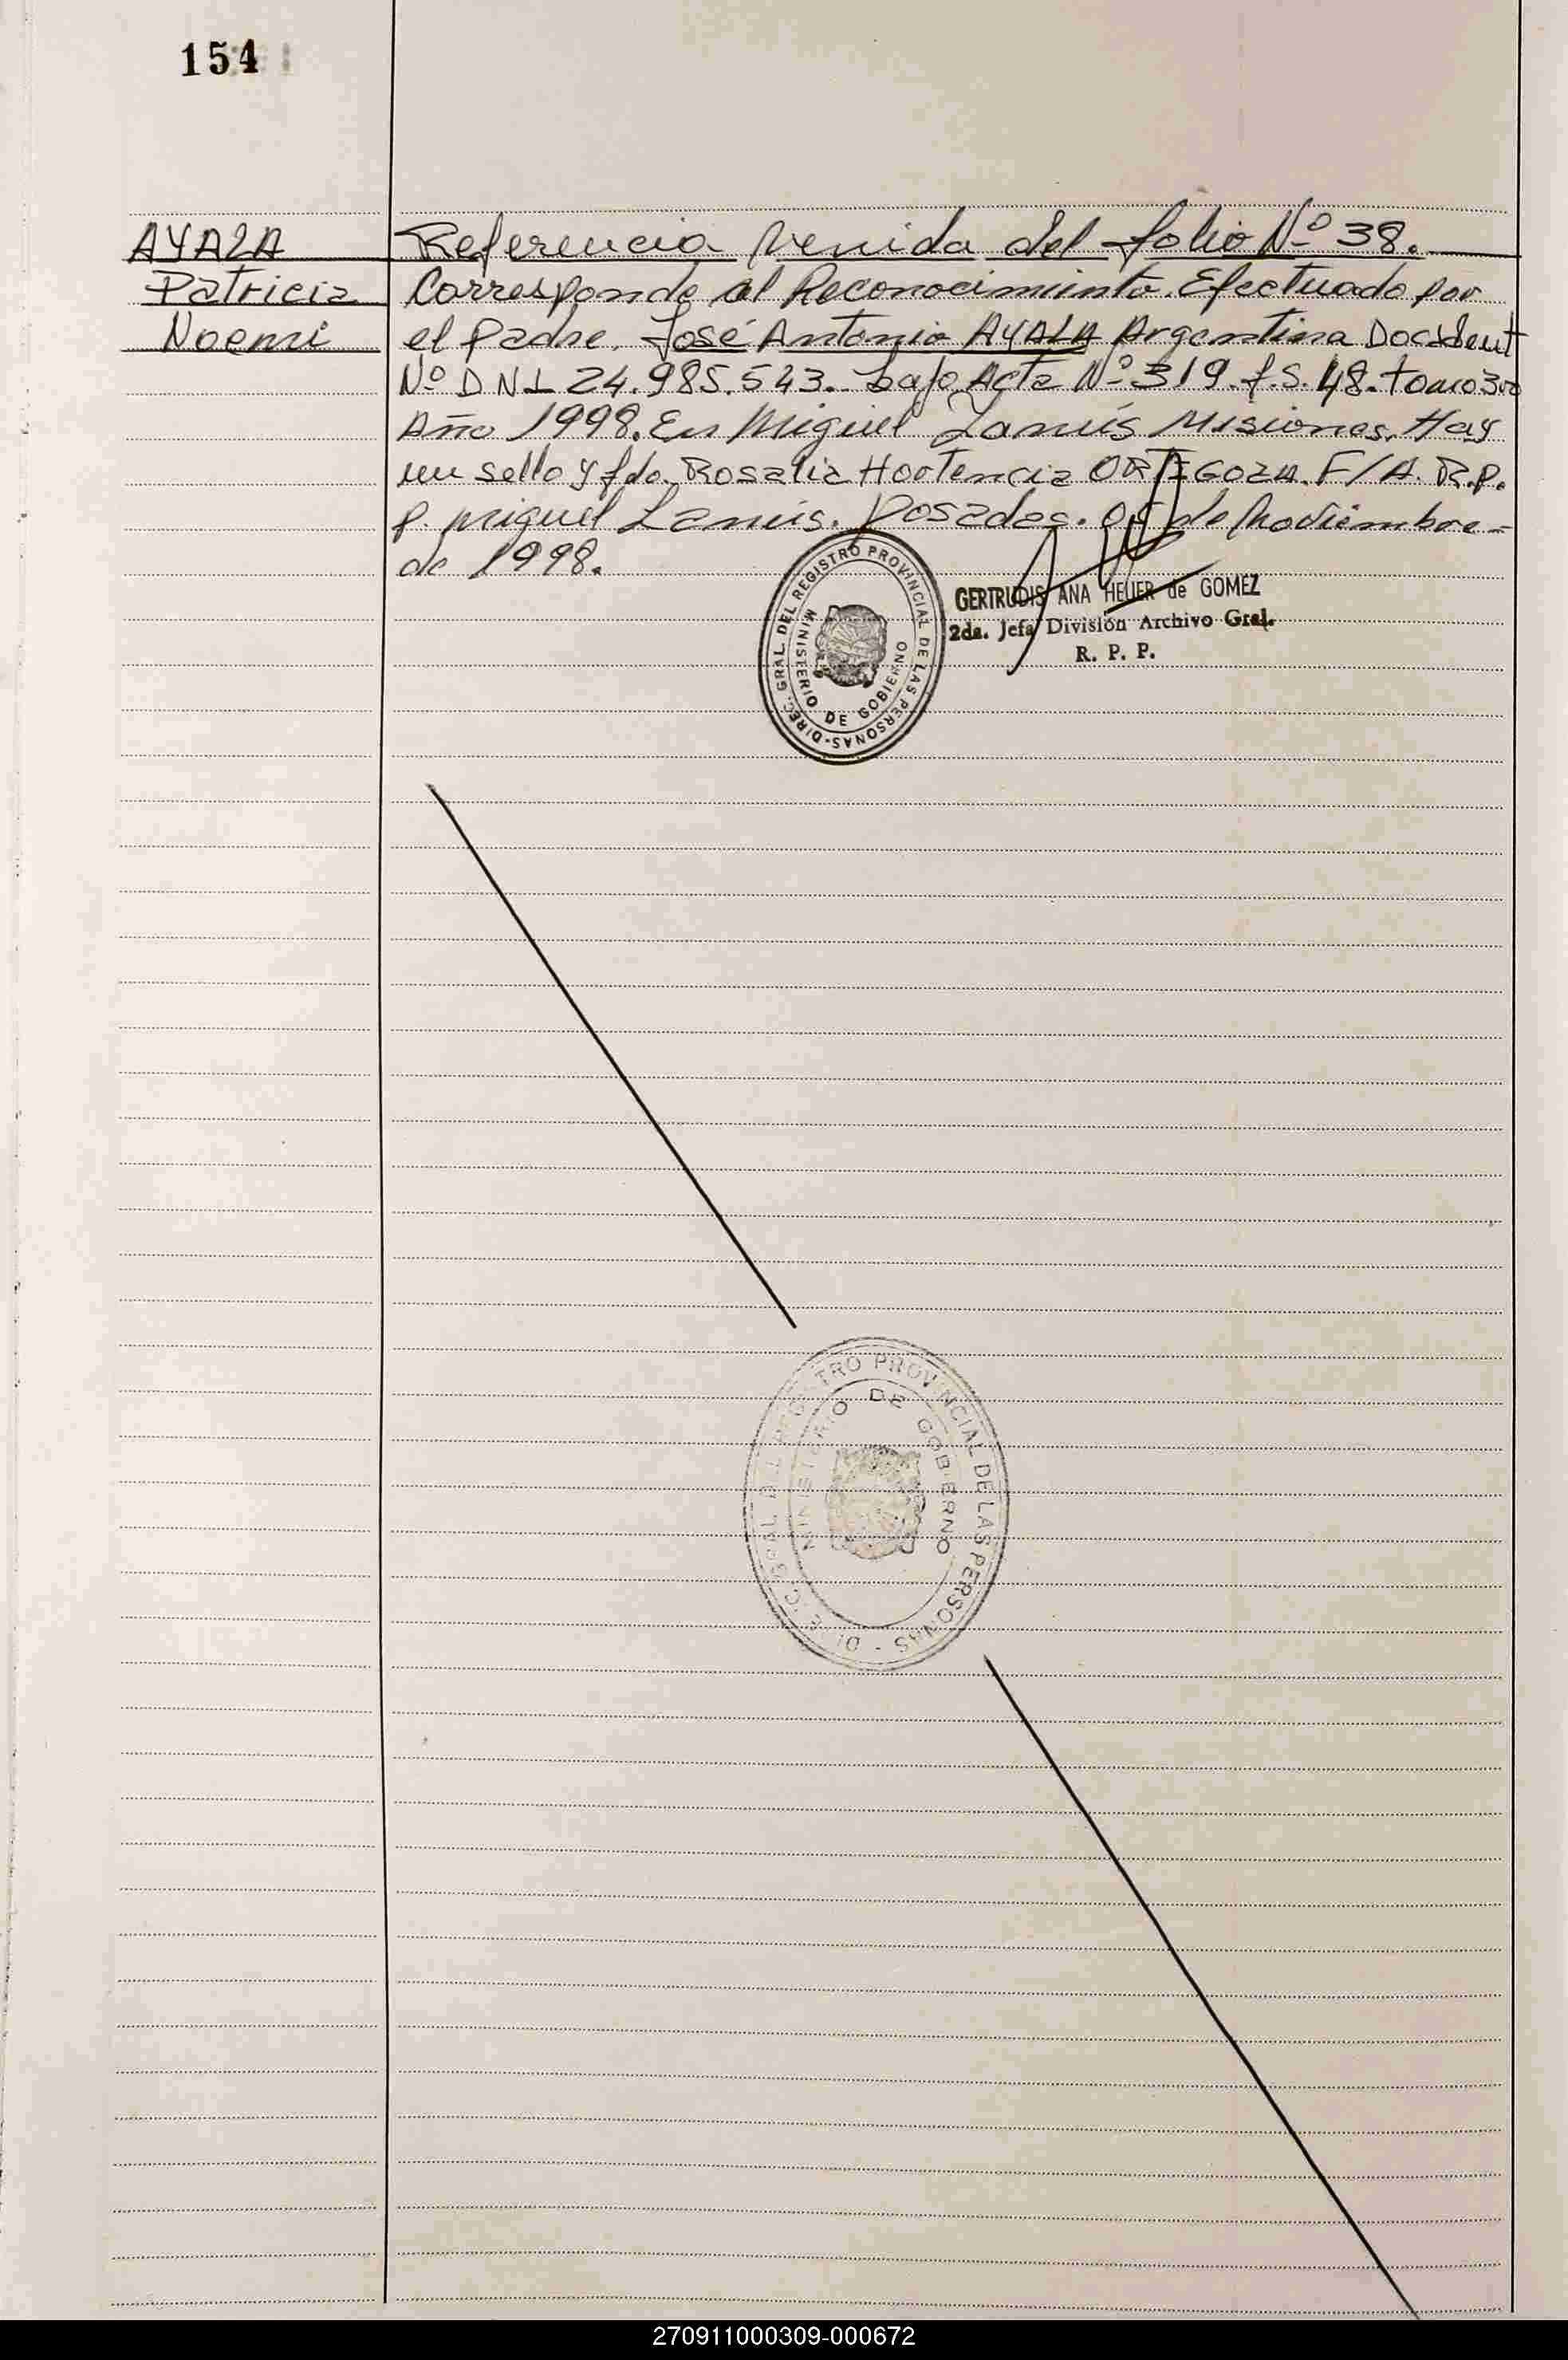 154
AYALA
Patricia
Noemi
Referencia Venida del folio Nº 38.
Corresponde al Reconocimiento. Efectuado por
el Padre. José Antonio AYALA Argentina Doc Ident
Nº D N I 24.985.543. bajo Acta Nº 319. f.S. 48. tomo 3ro
Año 1998. En Miguel Lanús Misiones. Hay
un sello y fdo. Rosalia Hortencia ORTEGOZA. F/A. R.P.
P. Miguel Lanús. Posadas. 05 de Noviembre-
de 1998.
DIREC. GRAL. DEL REGISTRO PROVINCIAL DE LAS PERSONAS-
MINISTERIO DE GOBIERNO
GERTRUDIS ANA HEUER de GOMEZ
2da. Jefa División Archivo Gral.
R. P. P.
DIREC. GRAL. DEL REGISTRO PROVINCIAL DE LAS PERSONAS -
MINISTERIO DE GOBIERNO
270911000309-000672